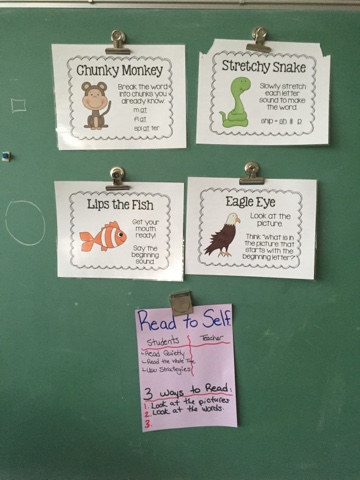 Chunky Monkey
Break the word
into chunks you
already know
m at
fl at
spl at ter
Stretchy Snake
Slowly stretch
each letter
sound to make
the word
ship = sh iii p
Lips the Fish
Get your
mouth
ready!
Say the
beginning
sound.
Eagle Eye
Look at the
picture.
Think "What is in
the picture that
starts with the
beginning letter?"
Read to Self
Students Teacher
- Read Quietly
- Read the Whole Time
- Use Strategies
3 Ways to Read:
1. Look at the pictures
2. Look at the words.
3.